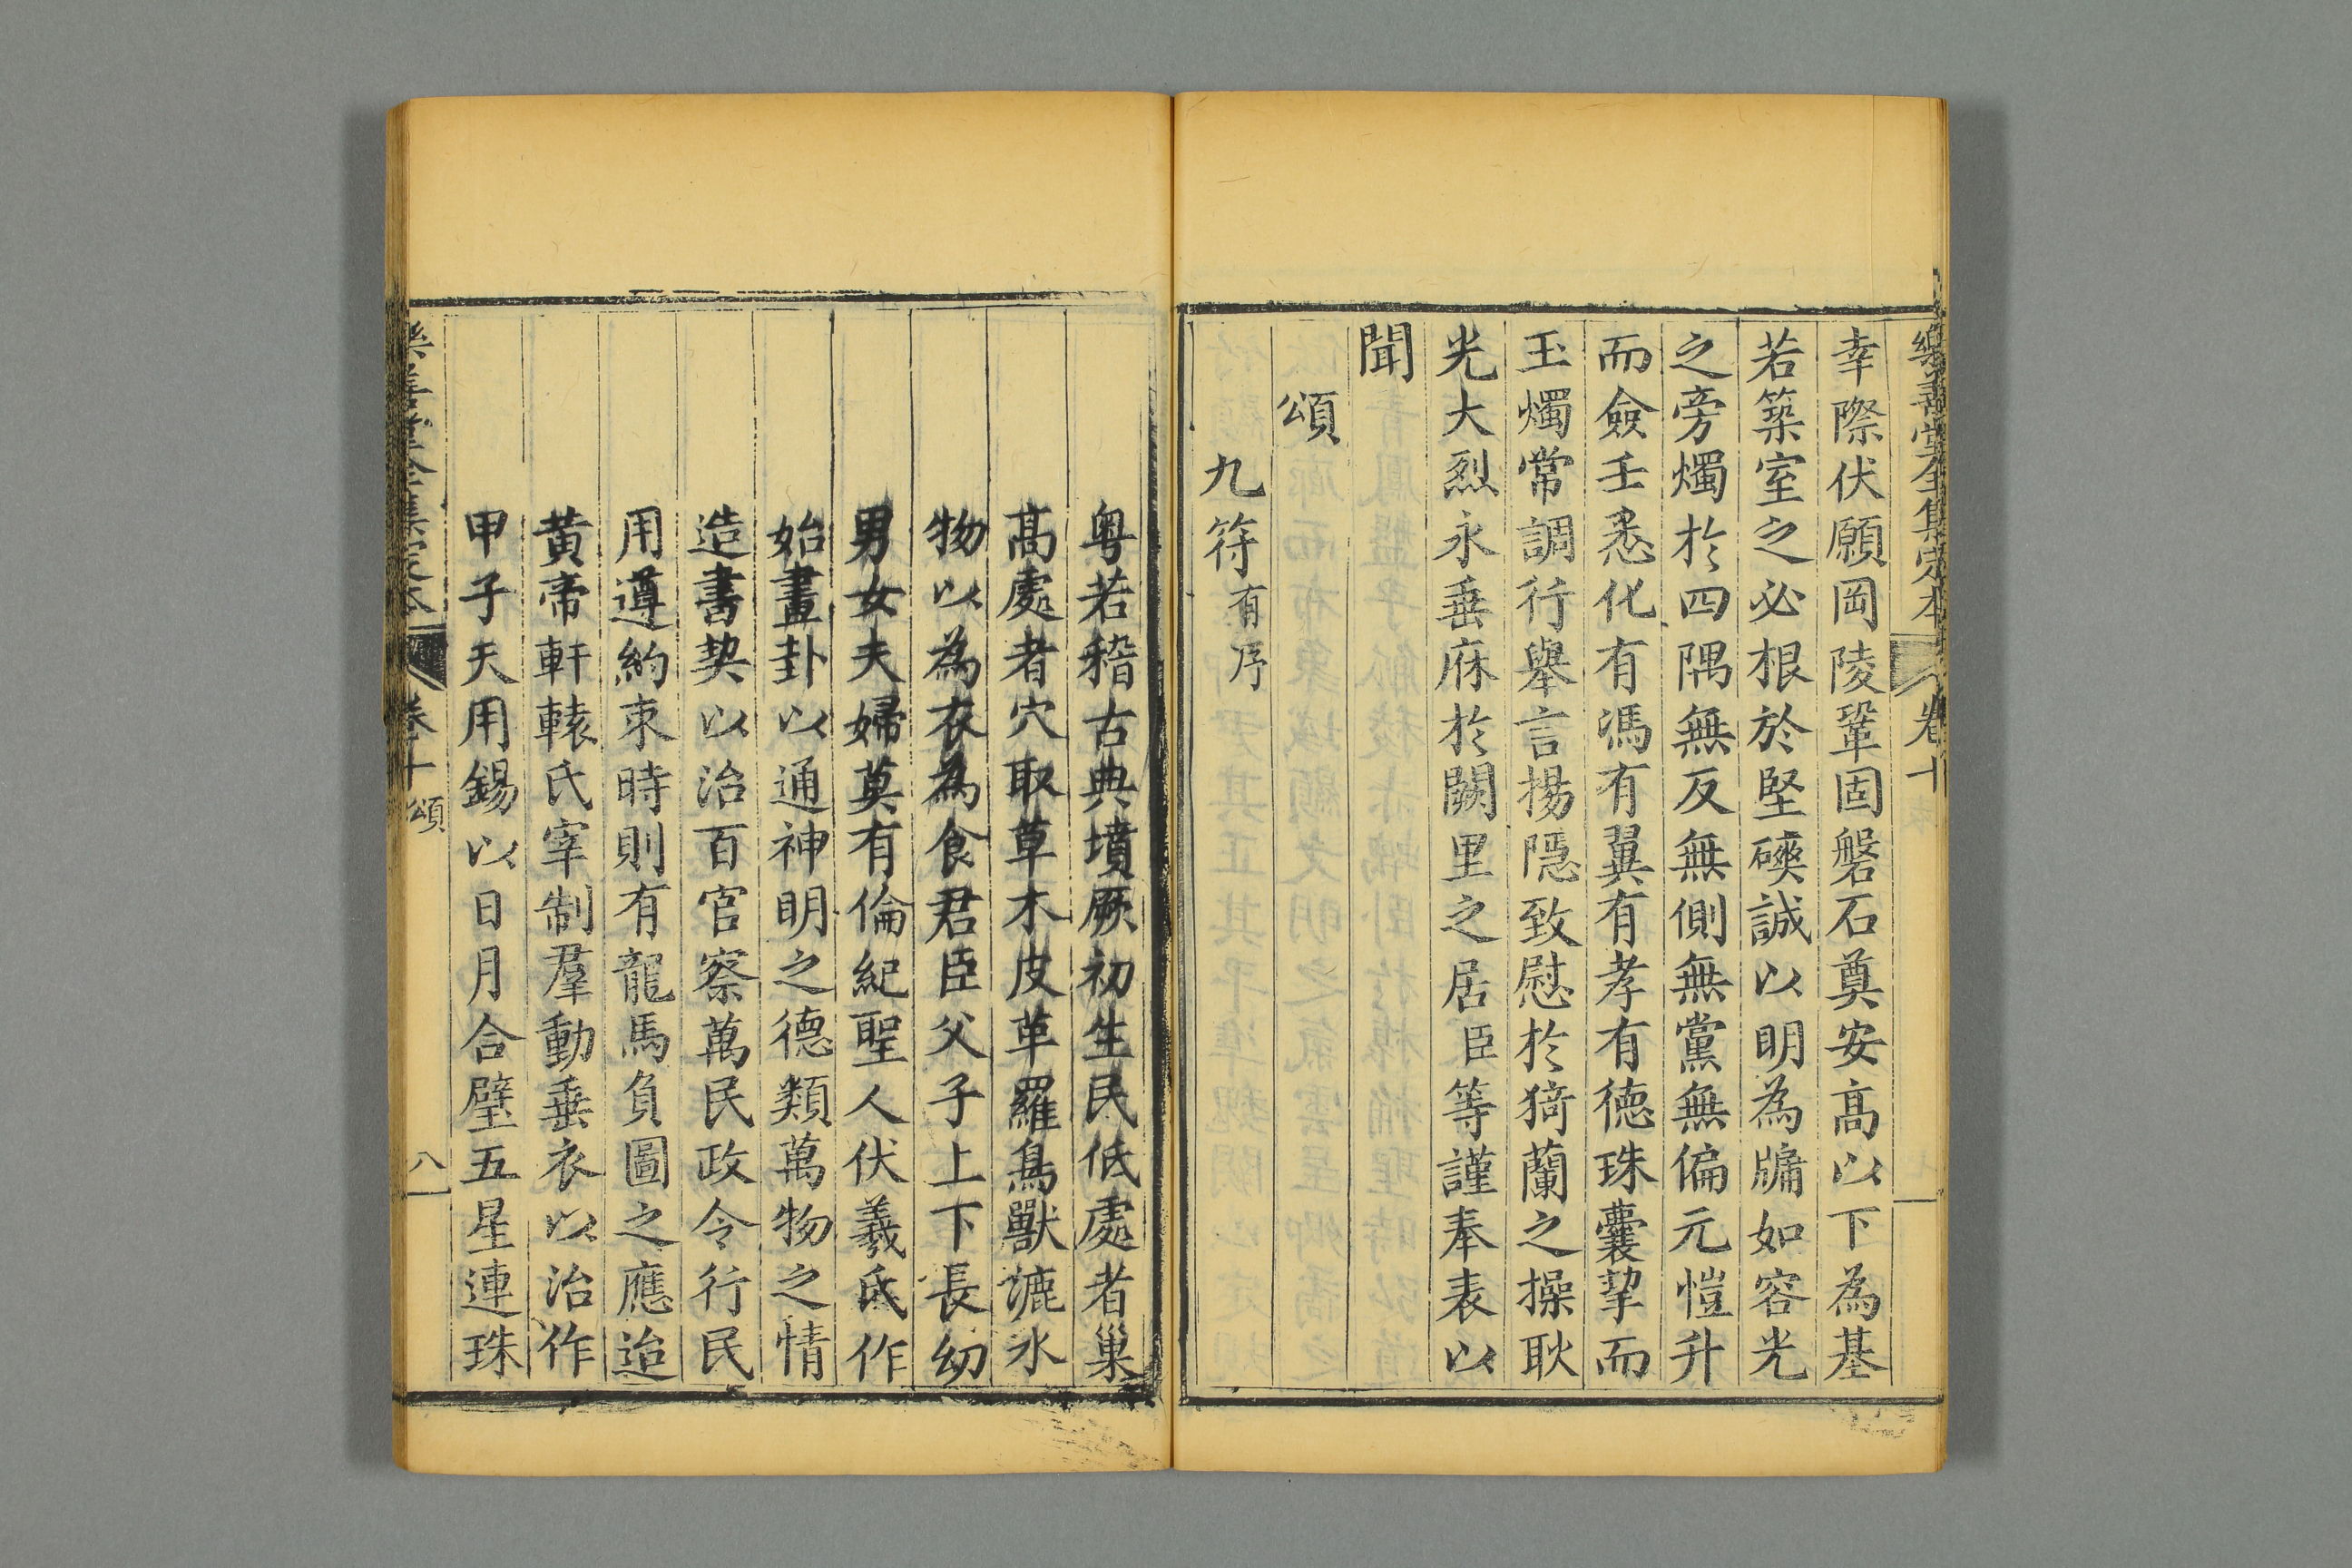 樂善堂全集定本 卷十
幸際伏願岡陵鞏固磐石奠安髙以下為基
若築室之必根於堅礩誠以明為牖如容光
之旁燭於四隅無反無側無黨無偏元愷升
而僉壬悉化有馮有翼有孝有德珠囊挈而
玉燭常調行舉言揚隱致慰於猗蘭之操耿
光大烈永垂庥於闕里之居臣等謹奉表以
聞
頌
九符有序
粤若稽古典墳厥初生民低處者巢
髙處者穴取草木皮革羅鳥獸漉水
物以為衣為食君臣父子上下長幼
男女夫婦莫有倫紀聖人伏羲氏作
始畫卦以通神明之德類萬物之情
造書契以治百官察萬民政令行民
用遵約束時則有龍馬負圖之應迨
黄帝軒轅氏宰制羣動垂衣以治作
甲子夭用錫以日月合璧五星連珠
樂善堂全集定本 卷十 頌 八